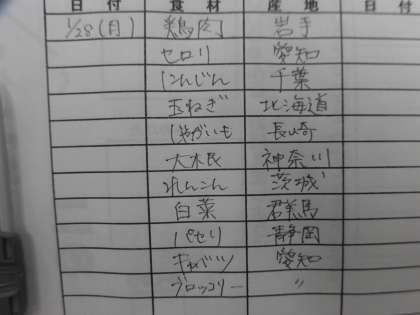 日付 食材 産地 日付
1/28(月) 鶏肉 岩手
セロリ 愛知
にんじん 千葉
玉ねぎ 北海道
じゃがいも 長崎
大根 神奈川
れんこん 茨城
白菜 群馬
パセリ 静岡
キャベツ 愛知
ブロッコリー 〃